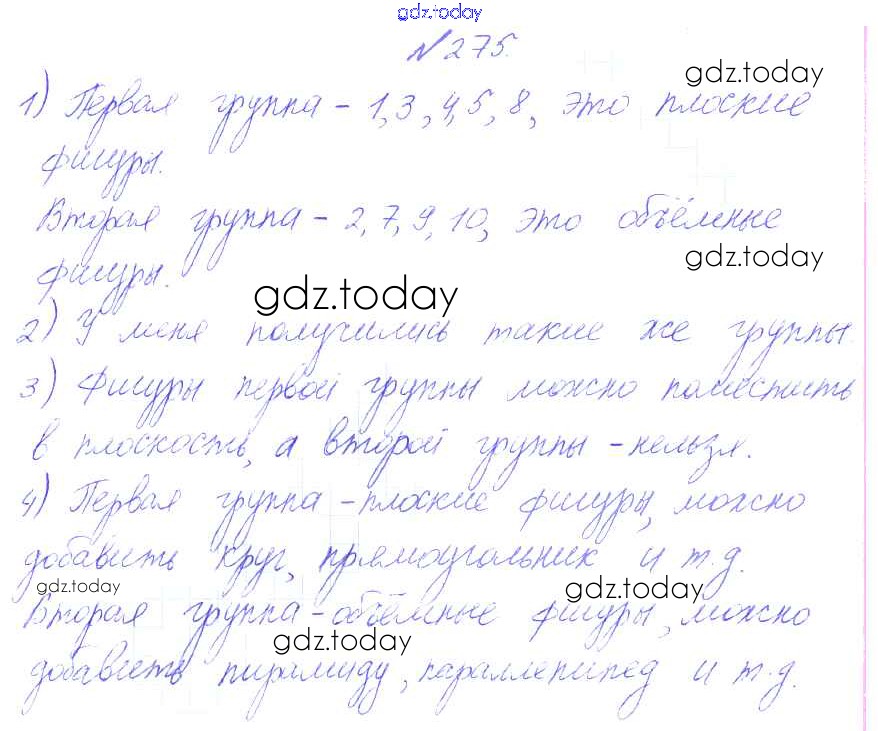 gdz.today
№275.
gdz.today
1) Первая группа - 1,3,4,5,8, это плоские
фигуры.
Вторая группа - 2,7,9,10, это объёмные
gdz.today
фигуры.
gdz.today
2) У меня получились такие же группы.
3) Фигуры первой группы можно поместить
в плоскость, а второй группы - нельзя.
4) Первая группа - плоские фигуры, можно
добавить круг, прямоугольник и т.д.
gdz.today
gdz.today
Вторая группа - объёмные фигуры, можно
gdz.today
добавить пирамиду, параллепипед и т.д.